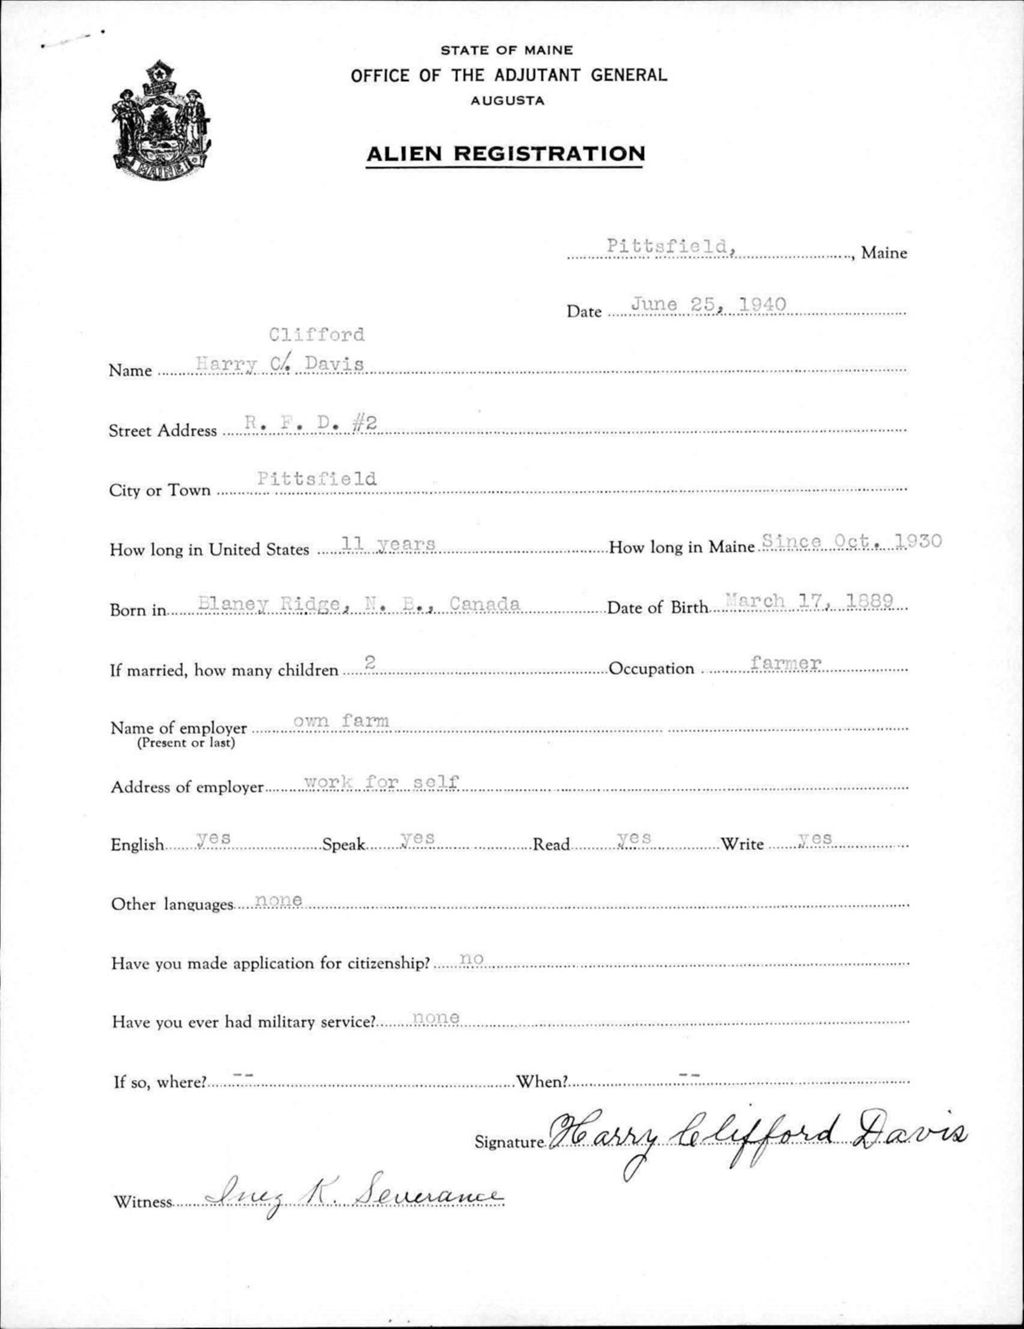 STATE OF MAINE
OFFICE OF THE ADJUTANT GENERAL
AUGUSTA
ALIEN REGISTRATION
MAINE
Pittsfield, , Maine
Date June 25, 1940
Clifford
Name Harry C/. Davis
Street Address R. F. D. #2
City or Town Pittsfield
How long in United States 11 years How long in Maine Since Oct. 1930
Born in Blaney Ridge, N. B., Canada Date of Birth March 17, 1889
If married, how many children 2 Occupation farmer
Name of employer own farm
(Present or last)
Address of employer work for self
English yes Speak yes Read yes Write yes
Other languages none
Have you made application for citizenship? no
Have you ever had military service? none
If so, where? -- When? --
Signature Harry Clifford Davis
Witness Inez K. Severance